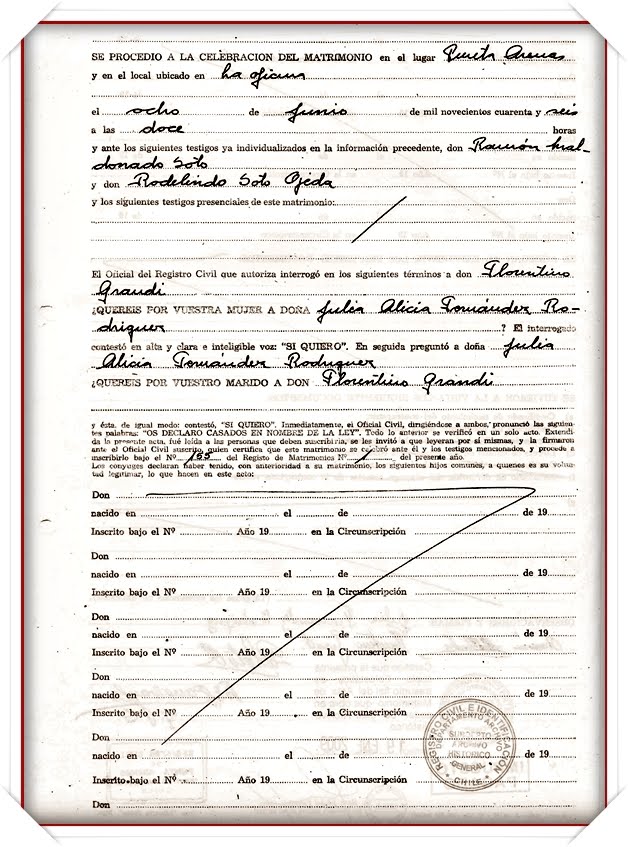 SE PROCEDIO A LA CELEBRACION DEL MATRIMONIO en el lugar Punta Arenas
y en el local ubicado en La oficina
el ocho de junio de mil novecientos cuarenta y seis
a las doce horas
y ante los siguientes testigos ya individualizados en la información precedente, don Ramón Mal-
donado Soto
y don Rodelindo Soto Ojeda
y los siguientes testigos presenciales de este matrimonio:
El Oficial del Registro Civil que autoriza interrogó en los siguientes términos a don Florentino
Grandi
¿QUEREIS POR VUESTRA MUJER A DOÑA Julia Alicia Fernández Ro-
driguez ? El interrogado
contestó en alta y clara e inteligible voz: "SI QUIERO". En seguida preguntó a doña Julia
Alicia Fernández Rodriguez
¿QUEREIS POR VUESTRO MARIDO A DON Florentino Grandi
y ésta, de igual modo: contestó, "SI QUIERO". Inmediatamente, el Oficial Civil, dirigiéndose a ambos, pronunció las siguien-
tes palabras: "OS DECLARO CASADOS EN NOMBRE DE LA LEY". Todo lo anterior se verificó en un solo acto. Extendi-
da la presente acta, fué leída a las personas que deben suscribirla, se les invitó a que leyeran por sí mismas, y la firmaron
ante el Oficial Civil suscrito, quien certifica que este matrimonio se celebró ante él y los testigos mencionados, y procede a
inscribirlo bajo el Nº 155 del Registro de Matrimonios Nº 1 del presente año.
Los cónyuges declaran haber tenido, con anterioridad a su matrimonio, los siguientes hijos comunes, a quienes es su volun-
tad legitimar, lo que hacen en este acto:
Don
nacido en el de de 19
Inscrito bajo el Nº Año 19 en la Circunscripción
Don
nacido en el de de 19
Inscrito bajo el Nº Año 19 en la Circunscripción
Don
nacido en el de de 19
Inscrito bajo el Nº Año 19 en la Circunscripción
Don
nacido en el de de 19
Inscrito bajo el Nº Año 19 en la Circunscripción
Don
nacido en el de de 19
Inscrito bajo el Nº Año 19 en la Circunscripción
Don
REGISTRO CIVIL E IDENTIFICACION
DEPARTAMENTO ARCHIVO
SUBDEPTO
ARCHIVO
HISTORICO
GENERAL
CHILE